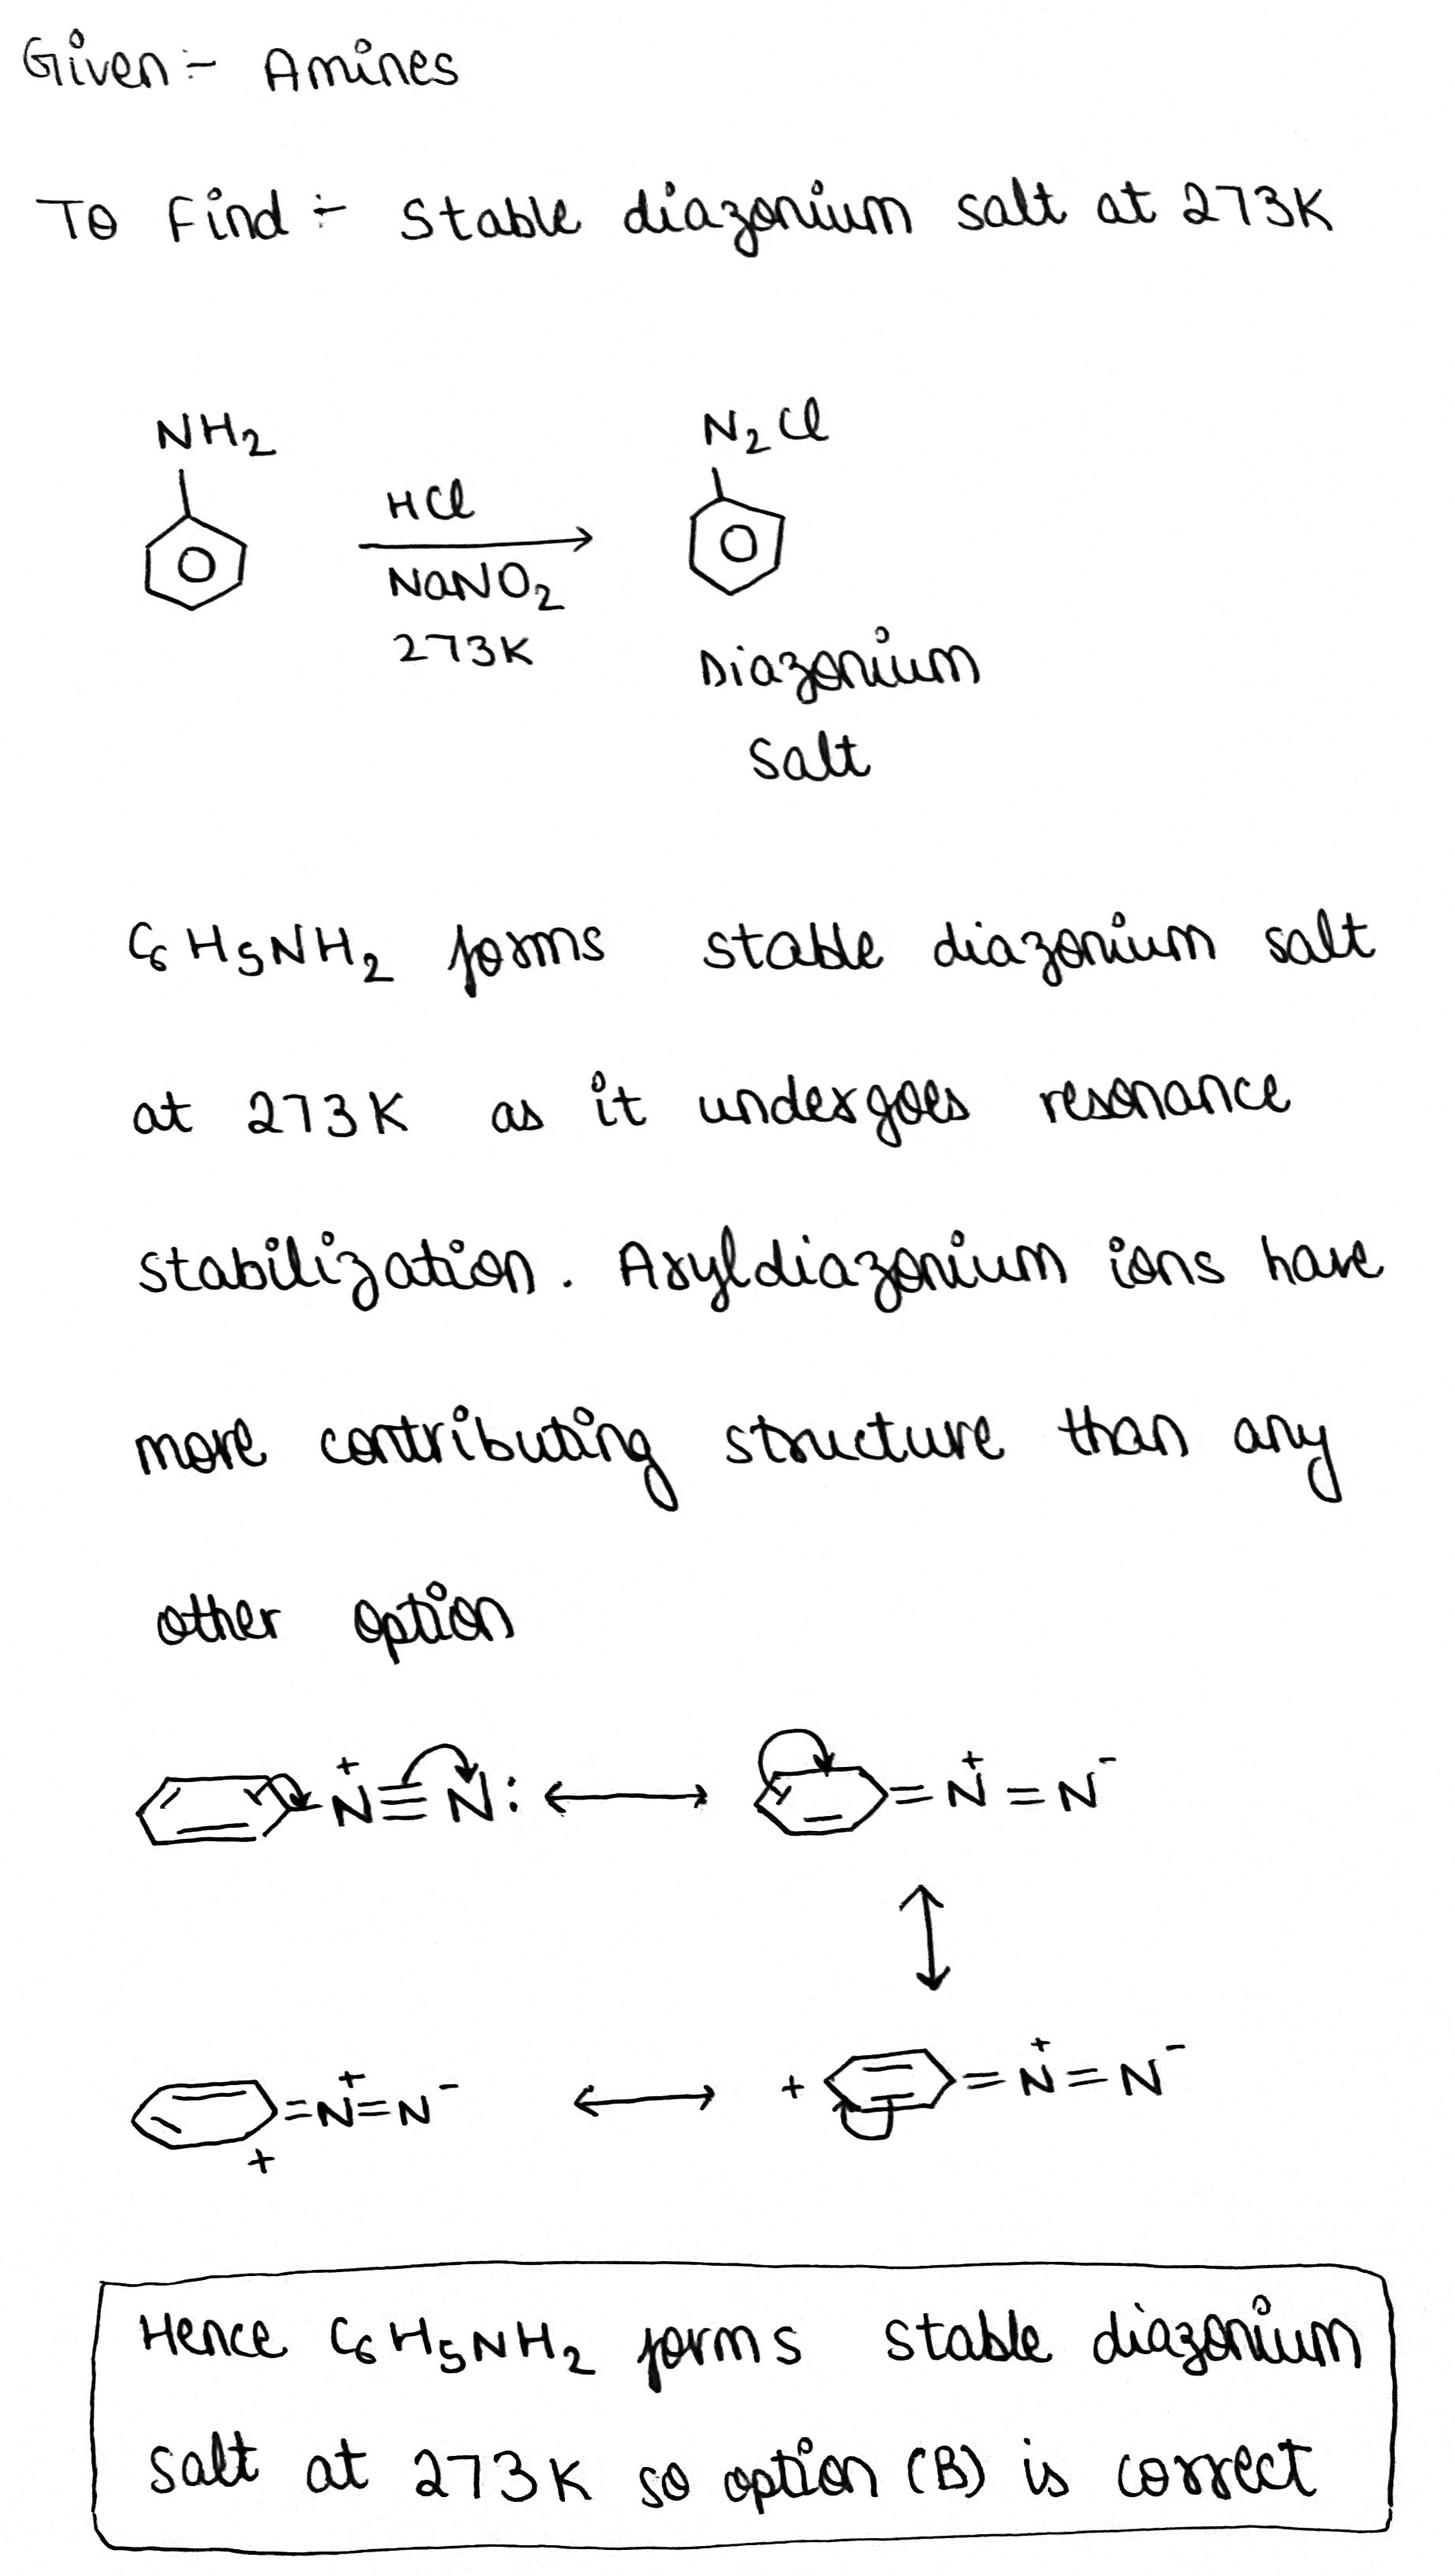 Given :- Amines
To Find :- Stable diazonium salt at 273K
NH2 N2Cl
HCl
NaNO2
273K
Diazonium
Salt
C6H5NH2 forms stable diazonium salt
at 273K as it undergoes resonance
stabilization. Aryldiazonium ions have
more contributing structure than any
other option
+N≡N: ⟷ =N+=N-
↕
=N+=N- ⟷ + =N+=N-
+
Hence C6H5NH2 forms stable diazonium
salt at 273K so option (B) is correct